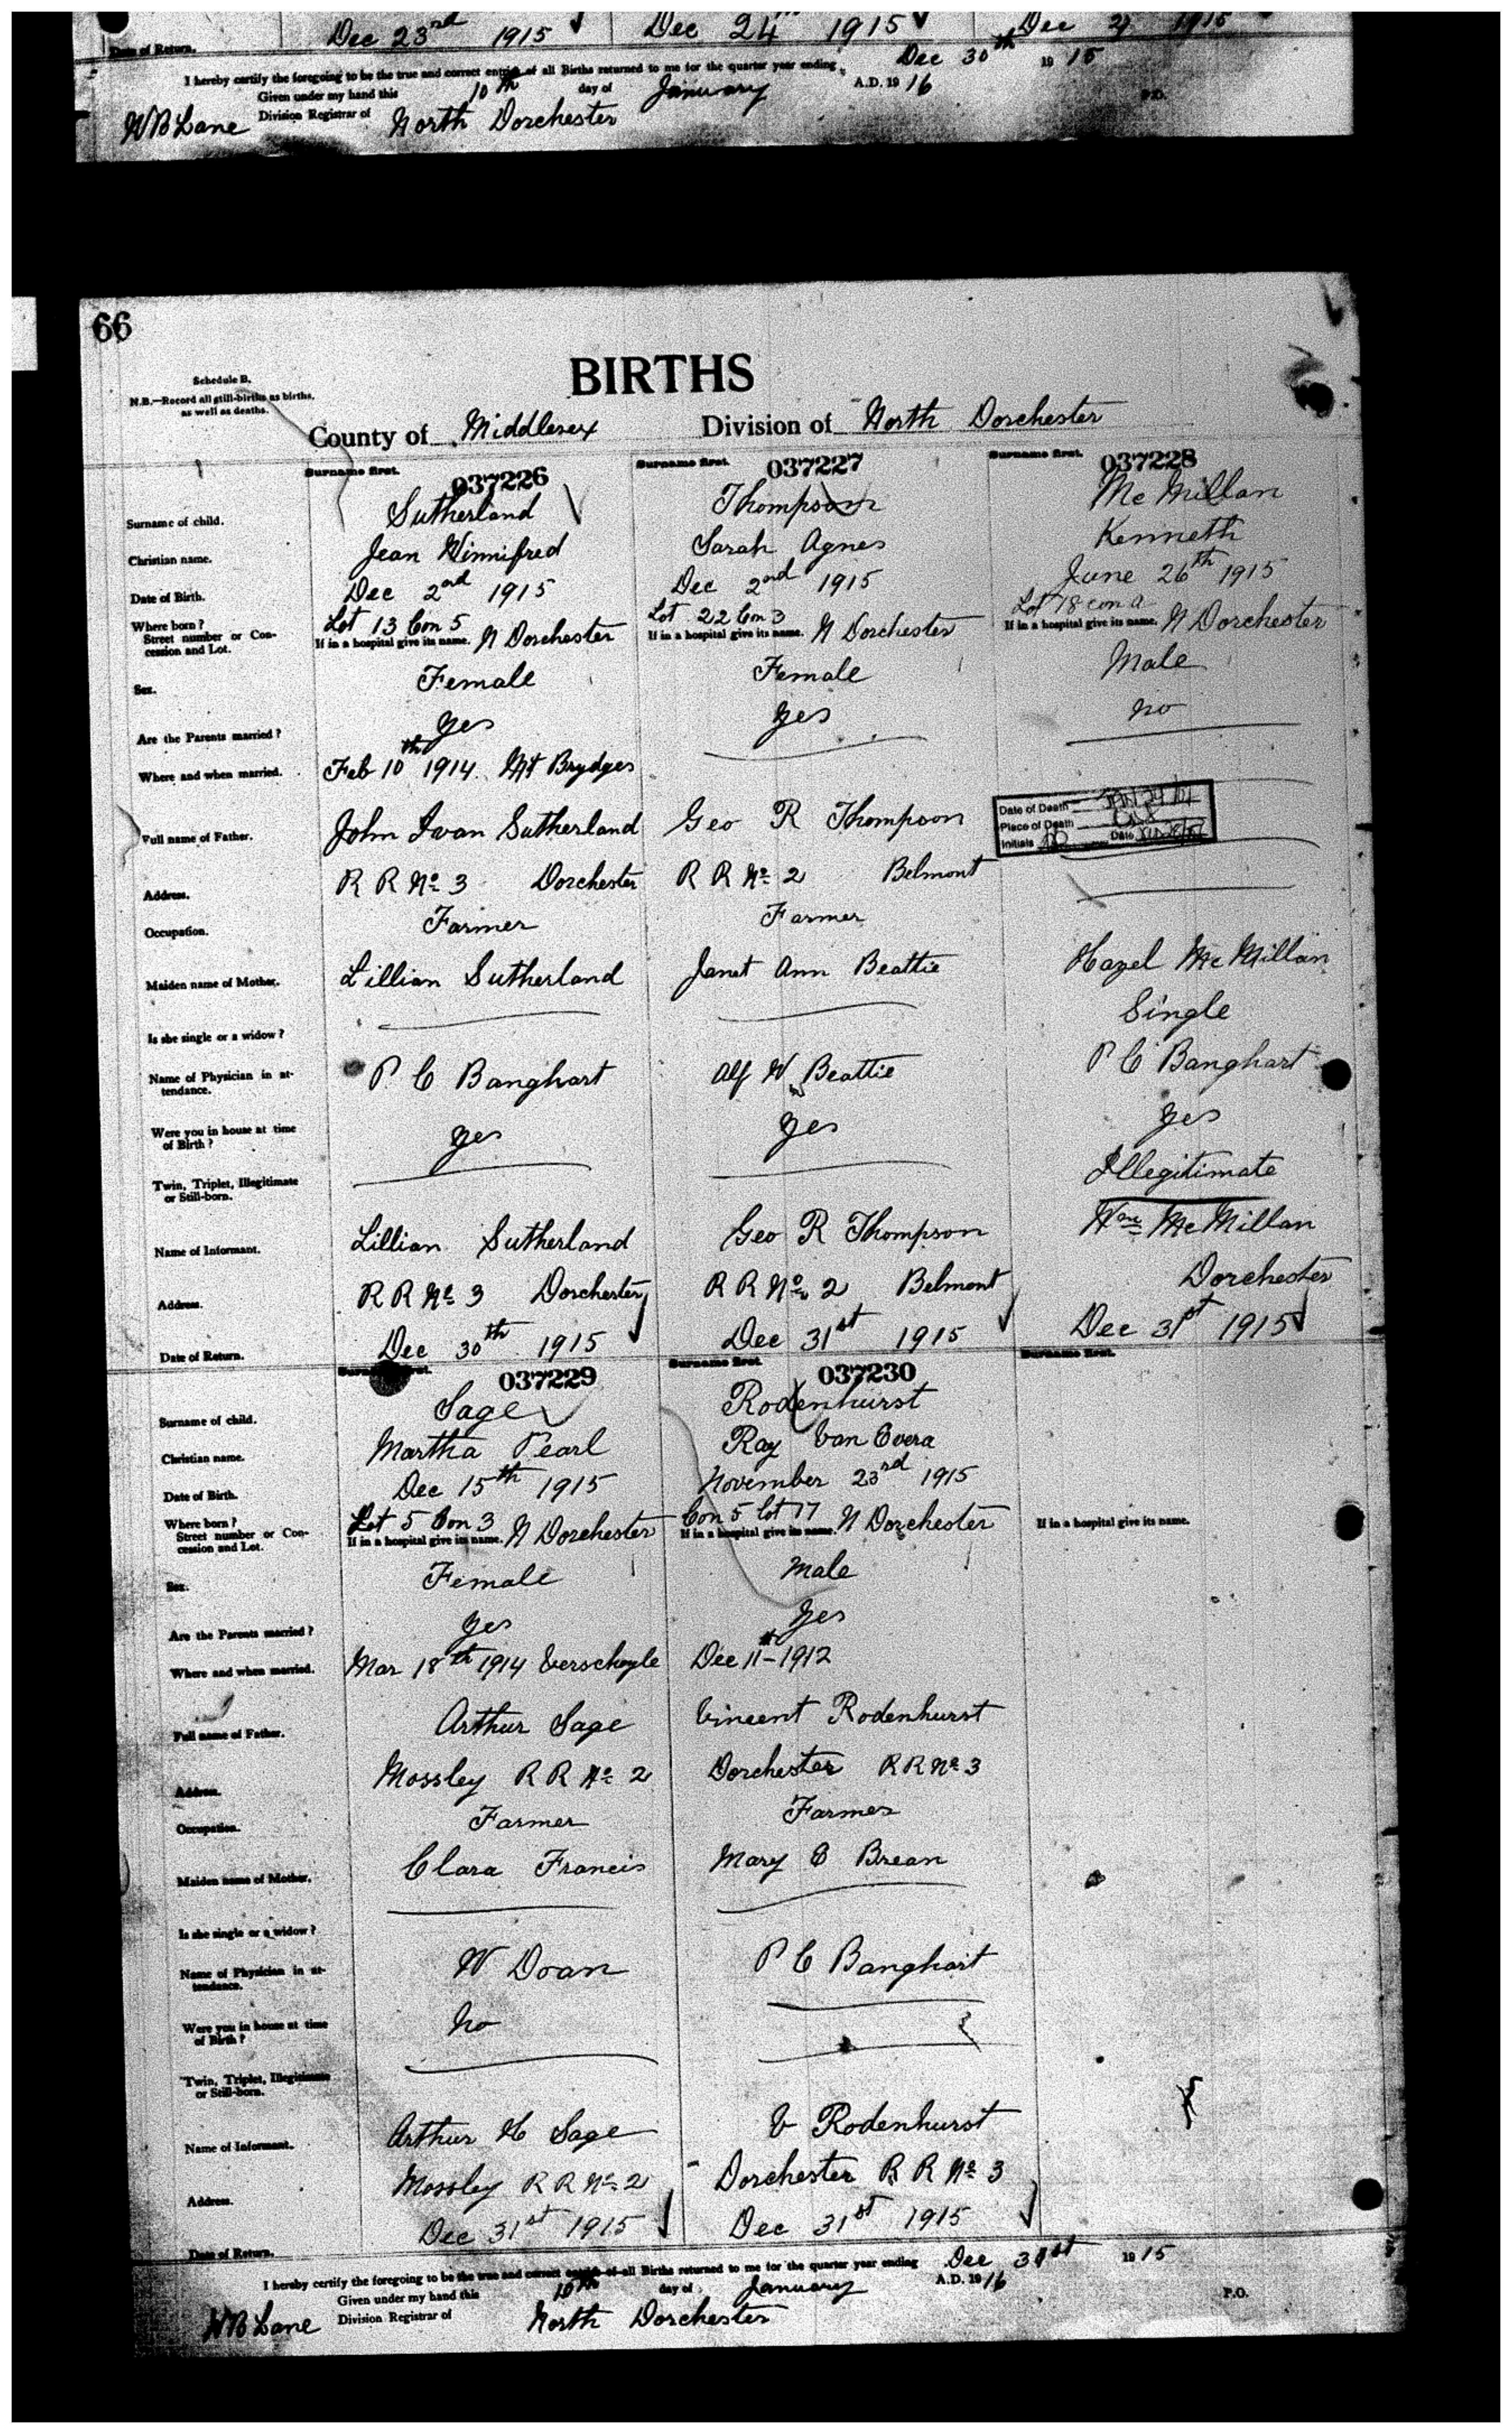 Date of Return. Dec 23rd 1915 Dec 24th 1915 Dec 1915
I hereby certify the foregoing to be the true and correct entries of all Births returned to me for the quarter year ending Dec 30th 1915
Given under my hand this 10th day of January A.D. 1916
WB Lane Division Registrar of North Dorchester P.O.
66
BIRTHS
Schedule B.
N.B.—Record all still-births as births,
as well as deaths.
County of Middlesex Division of North Dorchester
Surname first. Surname first. Surname first.
037226 037227 037228
Surname of child. Sutherland Thompson McMillan
Christian name. Jean Winnifred Sarah Agnes Kenneth
Date of Birth. Dec 2nd 1915 Dec 2nd 1915 June 26th 1915
Where born? Lot 13 Con 5 Lot 22 Con 3 Lot 18 con A
Street number or Con- If in a hospital give its name. N Dorchester If in a hospital give its name. N Dorchester If in a hospital give its name. N Dorchester
cession and Lot.
Sex. Female Female Male
Are the Parents married? Yes Yes no
Where and when married. Feb 10th 1914 Mt Brydges
Date of Death
Place of Death
Initials Date
Full name of Father. John Ivan Sutherland Geo R Thompson
Address. R R No 3 Dorchester R R No 2 Belmont
Occupation. Farmer Farmer
Maiden name of Mother. Lillian Sutherland Janet Ann Beattie Hazel McMillan
Is she single or a widow? Single
Name of Physician in at- P C Banghart Alf W Beattie P C Banghart
tendance.
Were you in house at time yes yes yes
of Birth?
Twin, Triplet, Illegitimate Illegitimate
or Still-born.
Name of Informant. Lillian Sutherland Geo R Thompson Wm McMillan
Address. R R No 3 Dorchester R R No 2 Belmont Dorchester
Date of Return. Dec 30th 1915 Dec 31st 1915 Dec 31st 1915
Surname first. Surname first. Surname first.
037229 037230
Surname of child. Sage Rodenhurst
Christian name. Martha Pearl Ray Van Evera
Date of Birth. Dec 15th 1915 November 23rd 1915
Where born? Lot 5 Con 3 Con 5 Lot 17
Street number or Con- If in a hospital give its name. N Dorchester If in a hospital give its name. N Dorchester If in a hospital give its name.
cession and Lot.
Sex. Female Male
Are the Parents married? Yes Yes
Where and when married. Mar 18th 1914 Verschoyle Dec 11th 1912
Full name of Father. Arthur Sage Vincent Rodenhurst
Address. Mossley R R No 2 Dorchester R R No 3
Occupation. Farmer Farmer
Maiden name of Mother. Clara Francis Mary E Brean
Is she single or a widow?
Name of Physician in at- W Doan P C Banghart
tendance.
Were you in house at time No
of Birth?
Twin, Triplet, Illegitimate
or Still-born.
Name of Informant. Arthur H Sage V Rodenhurst
Address. Mossley R R No 2 Dorchester R R No 3
Date of Return. Dec 31st 1915 Dec 31st 1915
I hereby certify the foregoing to be the true and correct entries of all Births returned to me for the quarter year ending Dec 31st 1915
Given under my hand this 10th day of January A.D. 1916
WB Lane Division Registrar of North Dorchester P.O.